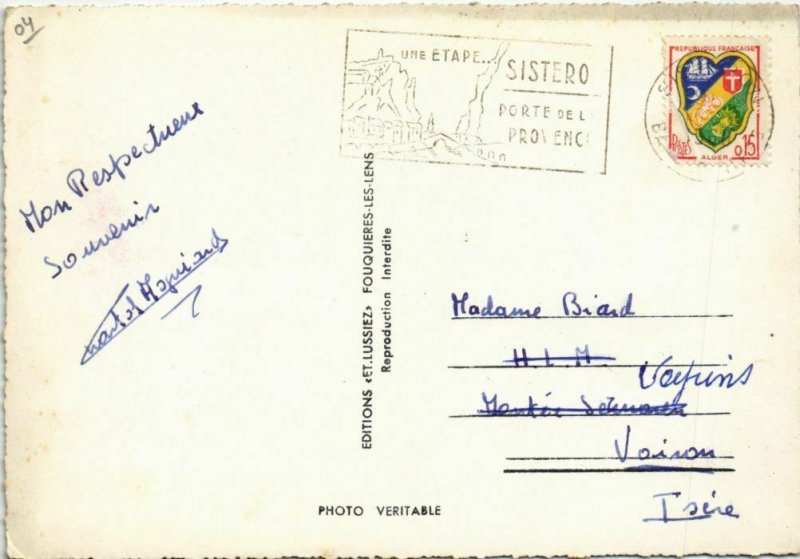 04
UNE ETAPE...
SISTERO
PORTE DE L
PROVENC
REPUBLIQUE FRANÇAISE
POSTES
0,15
ALGER
Mon Respectueux
Souvenir
EDITIONS «ET.LUSSIEZ» FOUQUIERES-LES-LENS
Reproduction Interdite
Madame Biard
H.L.M.
Montée
Voiron
Isère
PHOTO VERITABLE